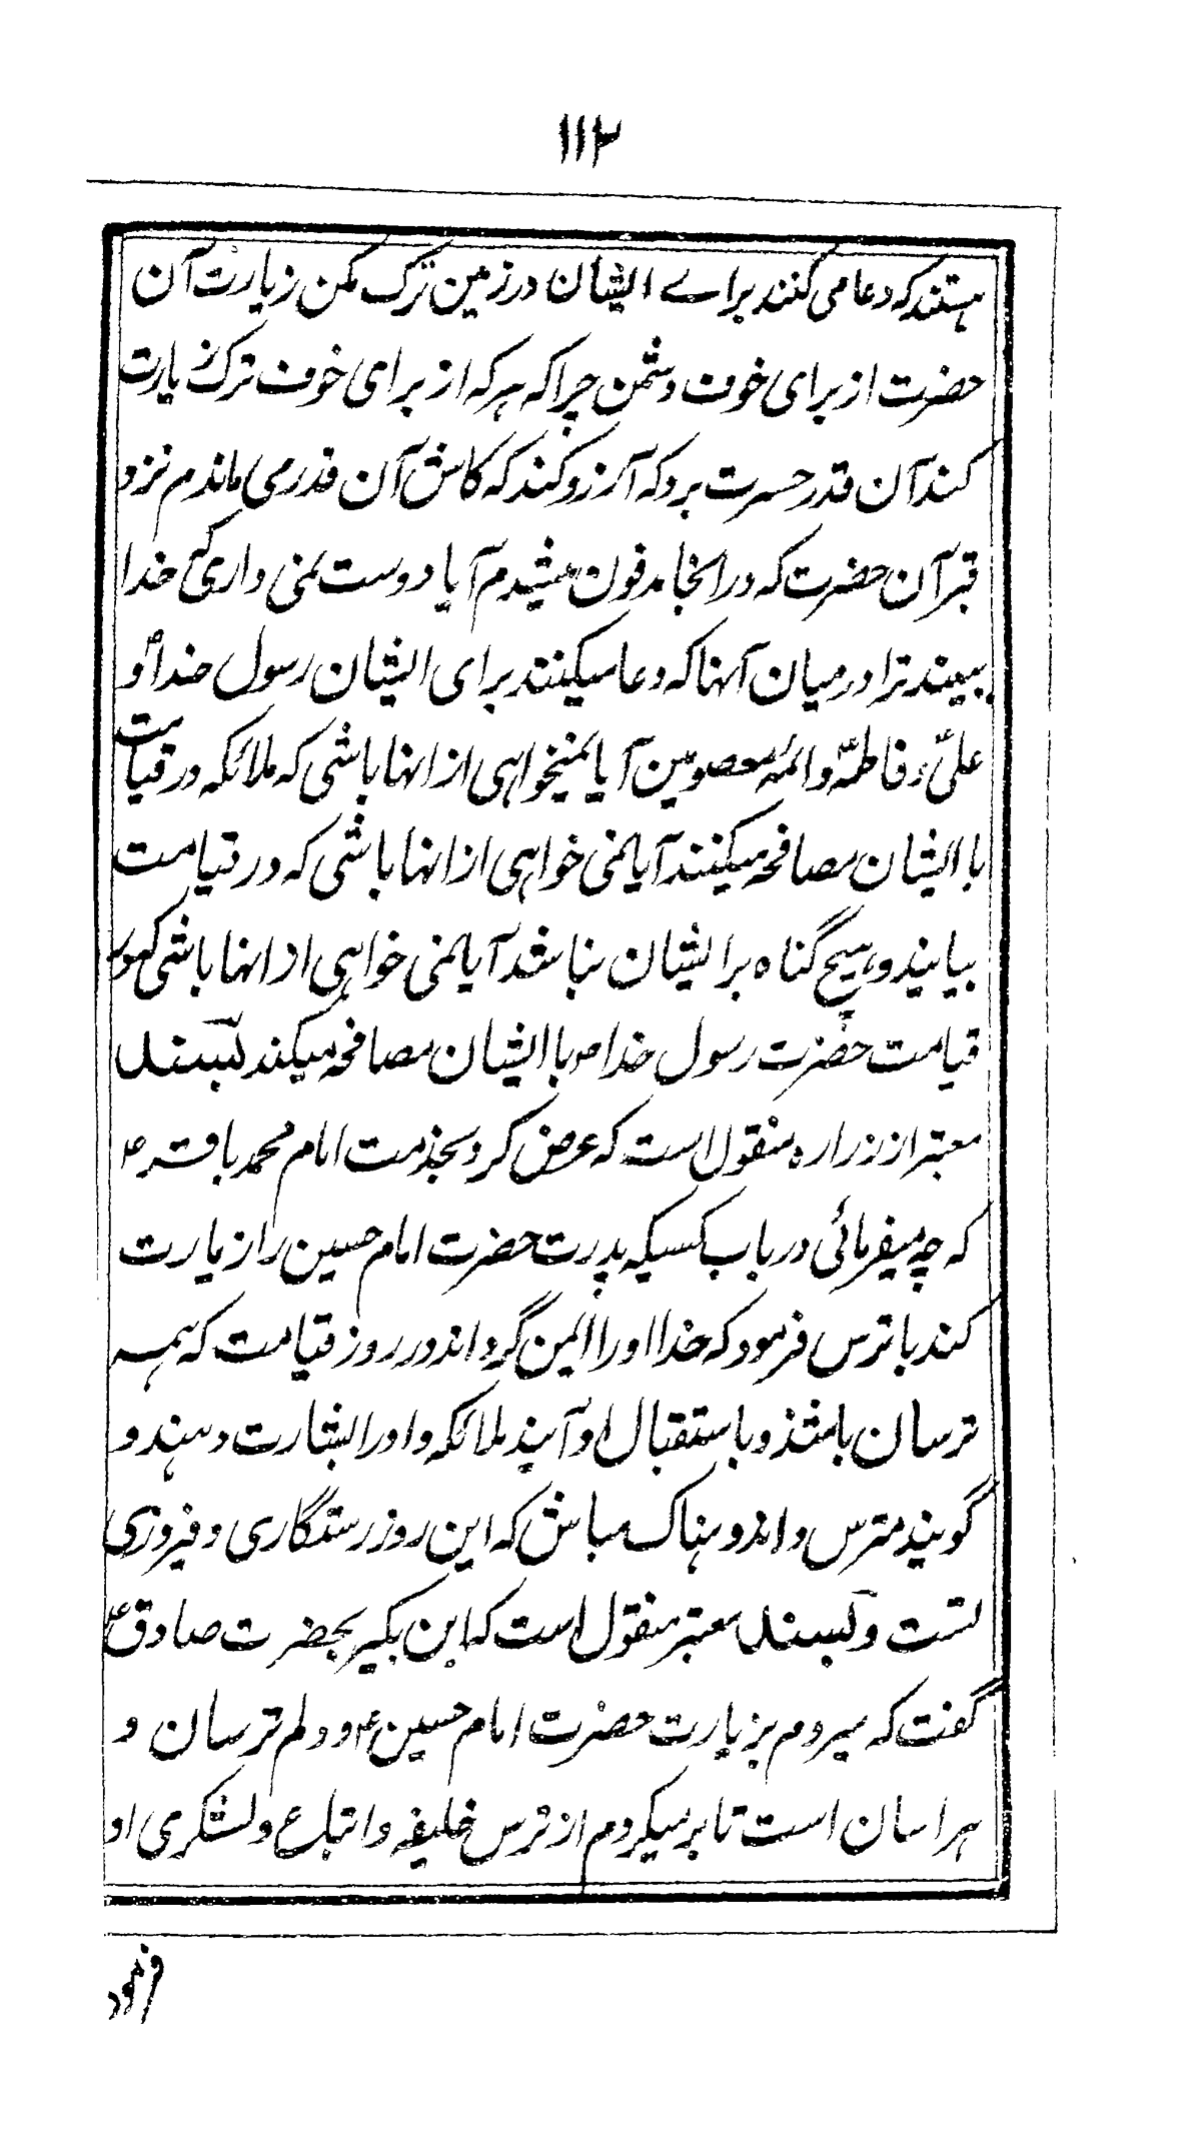 ۱۱۲
هستند که دعا می کنند براے ایشان در زمین ترک مکن زیارت آن
حضرت از برای خوف دشمن چرا که هر که از برای خوف ترک زیارت
کند آن قدر حسرت برد که آرزو کند که کاش آن قدر می ماندم نزد
قبر آن حضرت که در انجا مدفون میشدم آیا دوست نمی داری که خدا
ببیند ترا در میان آنها که دعا میکنند برای ایشان رسول خدا و
علی و فاطمه و ائمه معصومین آیا نمیخواهی از انها باشی که ملائکه در قیامت
با ایشان مصافحه میکنند آیا نمی خواهی از انها باشی که در قیامت
بیایند و هیچ گناه بر ایشان نباشد آیا نمی خواهی از انها باشی که در
قیامت حضرت رسول خدا ص با ایشان مصافحه میکند بسند
معتبر از زراره منقول است که عرض کرد بخدمت امام محمد باقر ع
که چه میفرمائی در باب کسیکه پدرت حضرت امام حسین را زیارت
کند با ترس فرمود که خدا او را ایمن گرداند در روز قیامت که همه
ترسان باشند و باستقبال او آیند ملائکه و اورا بشارت دهند و
گویند مترس و اندوهناک مباش که این روز رستگاری و فیروزی
تست و بسند معتبر منقول است که ابن بکیر بحضرت صادق ع
گفت که میروم بزیارت حضرت امام حسین ع و دلم ترسان و
هراسان است تا برمیگردم از ترس خلیفه و اتباع و لشکری او
فرمود